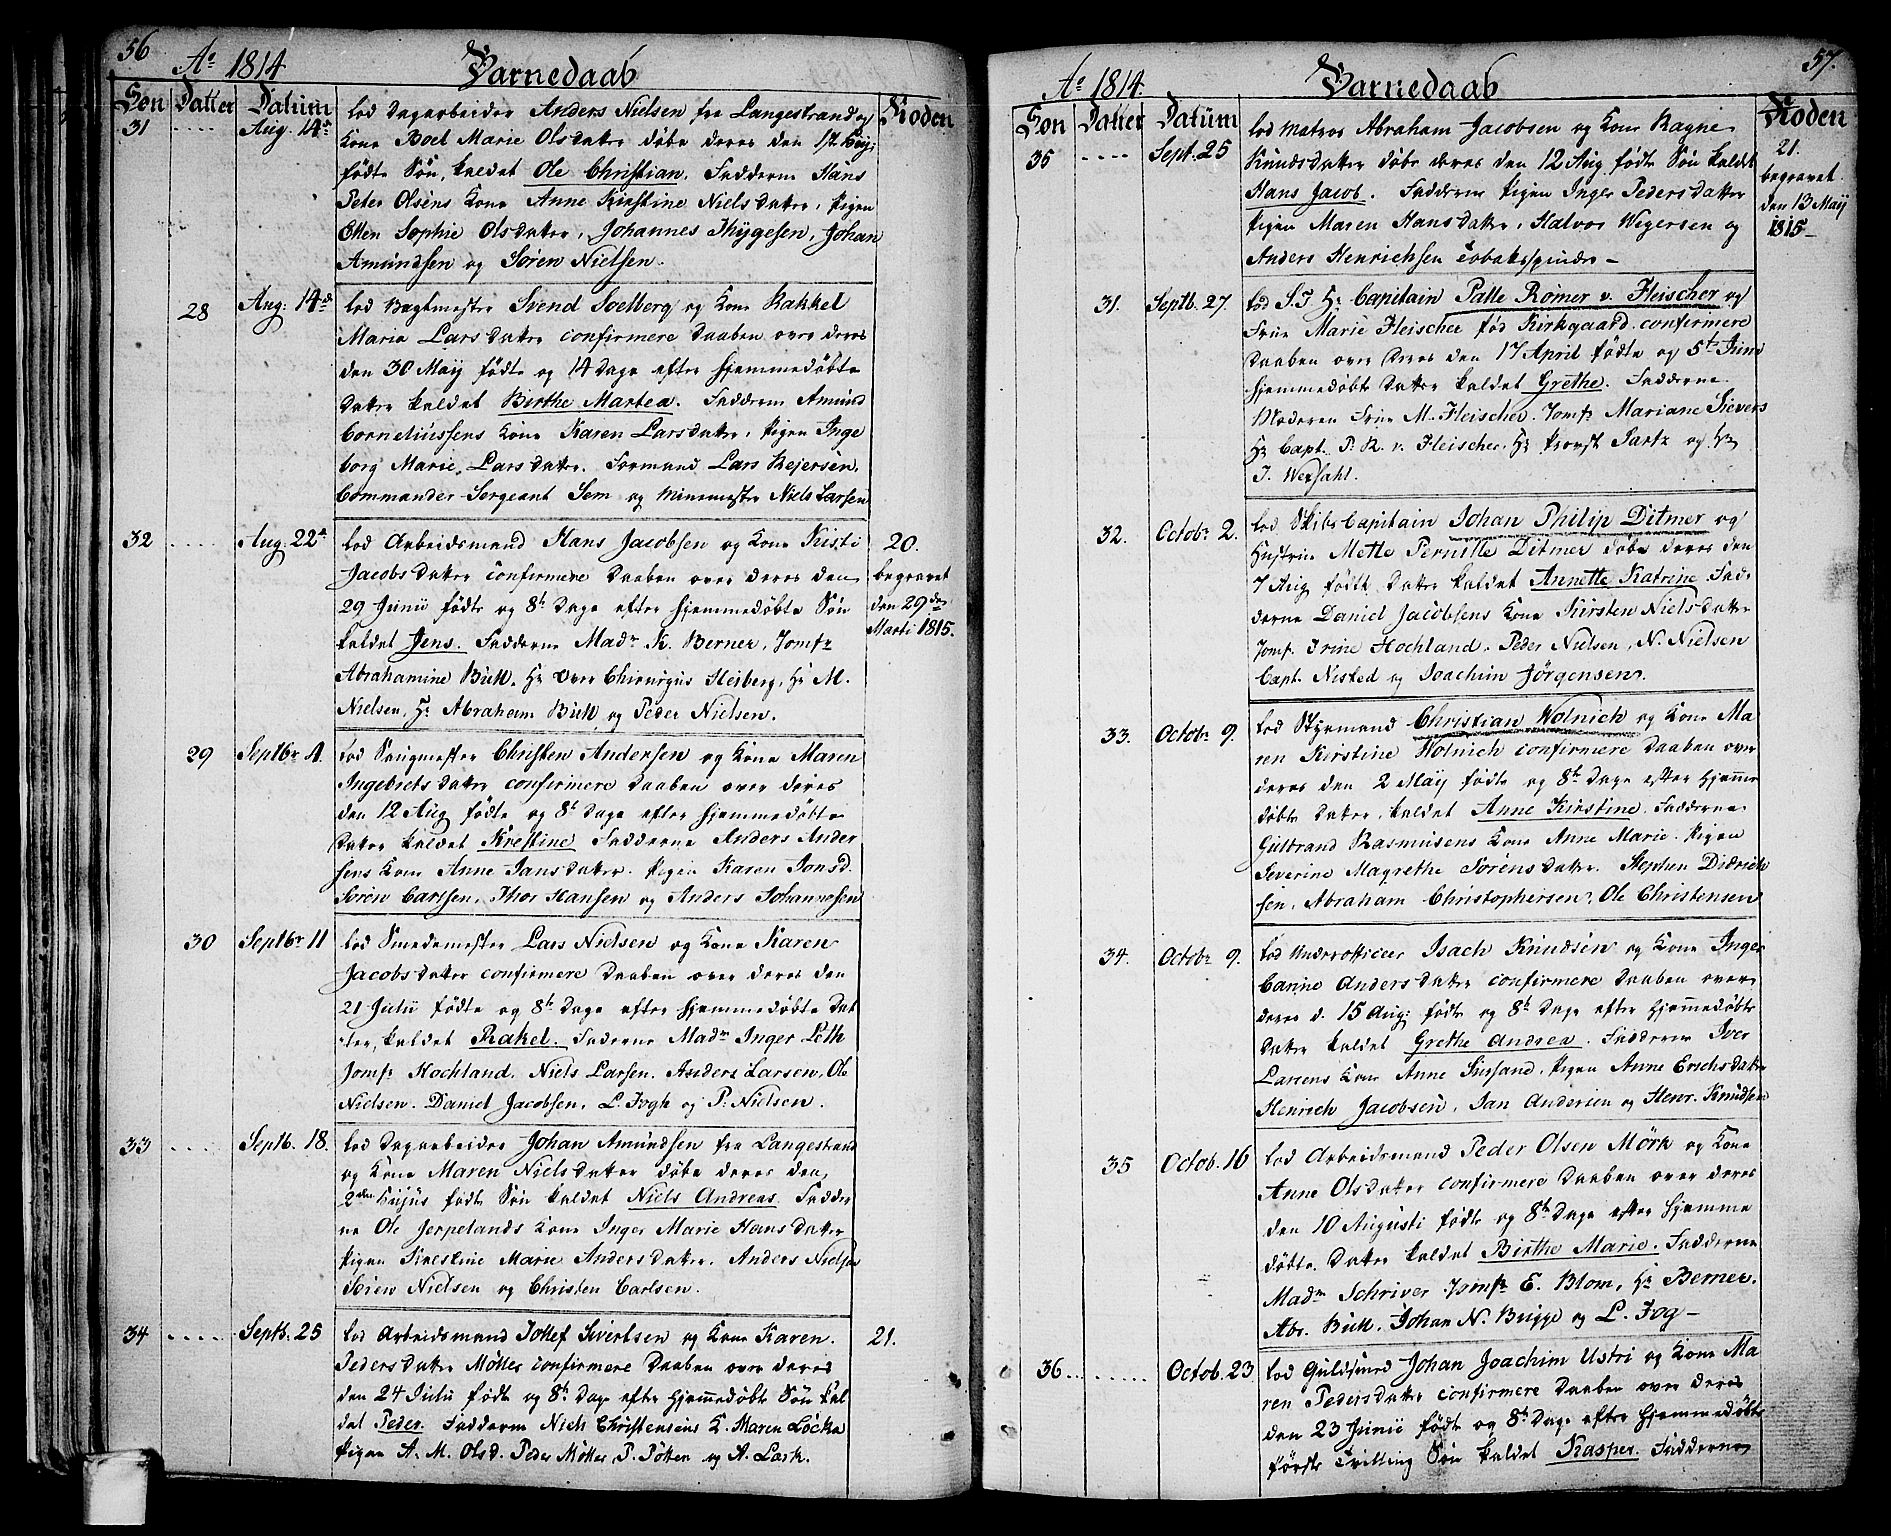 56
Ao 1814
Barnedaab
Søn Datter Datum Koden
31 .... Aug. 14de
lod Dagarbeider Anders Nielsen fra Langestrand og
Kone Boel Marie Olsdatter døbe deres den 1ste Huj:
fødte Søn, kaldet Ole Christian. Fadderne Hans
Peter Olsens Kone Anne Kirstine Nielsdatter, Pigen
Ellen Sophie Olsdatter, Johannes Thygesen, Johan
Amundsen og Søren Nielsen.
28 Aug: 14de
lod Bagtmester Svend Soelberg og Kone Rakkel
Maria Larsdatter confirmere Daaben over deres
den 30 May fødte og 14 Dage efter hjemmedøbte
Datter kaldet Birthe Martea. Fadderne Amund
Corneliussens Kone Karen Larsdatter, Pigen Inge
borg Marie Larsdatter. Formand Lars Rejersen,
Commander-Sergeant Sem og Minemester Niels Larsen
32 .... Aug. 22de
lod Arbeidsmand Hans Jacobsen og Kone Kisti
Jacobsdatter confirmere Daaben over deres den
29 Junii fødte og 8te Dage efter hjemmedøbte Søn
kaldet Jens. Fadderne Madm K. Berner, Jomfr
Abrahamine Bull, Hr Over Chirurgus Heiberg, Hr M.
Nielsen, Hr Abraham Bull og Peder Nielsen.
20.
begravet
den 29de
Marti 1815.
29 Septbr 4.
lod Saugmester Christen Andersen og Kone Maren
Ingebretsdatter confirmere Daaben over deres
den 12 Aug fødte og 8te Dage efter hjemmedøbte
Datter kaldet Krestine Fadderne Anders Ander
sens Kone Anne Jansdatter. Pigen Karen Jonsd.
Søren Carlsen, Thor Hansen og Anders Johannesen
30 Septbr 11
lod Smedemester Lars Nielsen og Kone Karen
Jacobsdatter confirmere Daaben over deres den
21 Julii fødte og 8te Dage efter hjemmedøbte Dat
ter, kaldet Rakel. Fadderne Madm Inger Leth
Jomfr Hochland, Niels Larsen. Anders Larsen, Ole
Nielsen. Daniel Jacobsen, L. Fogh og P. Nielsen.
33 .... Septb. 18.
lod Dagarbeider Johan Amundsen fra Langestrand
og Kone Maren Nielsdatter døbe deres den
2den Hujus fødte Søn kaldet Niels Andreas. Fadder
ne Ole Jerpelands Kone Inger Marie Hansdatter
Pigen Krestine Marie Andersdatter. Anders Nielsen
Søren Nielsen og Christen Carlsen.
34 ..... Septb. 25
lod Arbeidsmand Tollef Sivertsen og Kone Karen
Pedersdatter Møller confirmere Daaben over deres
den 24 Julii fødte og 8te Dage efter Hjemmedøbte Søn kal
det Peder. Fadderne Niels Christensens K. Maren Løcka
Pigen A. M. Olsd. Peder Møller P. Potten og A. Lark.
21.
57.
Ao 1814.
Barnedaab
Søn Datter Datum Koden
35 .... Sept. 25
lod Matros Abraham Jacobsen og Kone Ragne
Knudsdatter døbe deres den 12 Aug fødte Søn kaldet
Hans Jacob. Fadderne Pigen Inger Pedersdatter
Pigen Maren Hansdatter. Halvor Wegersen og
Anders Henrichsen Tobakspinder -
21.
begravet
den 13 Maij
1815-
31. Septb. 27.
lod S.T. Hr Capitain Palle Rømer v. Fleischer og
Frue Marie Fleischer fød Kirkgaard confirmere
Daaben over Deres den 17 April fødte og 5te Junii
hjemmedøbte Datter kaldet Grethe. Fadderne
Moderen Frue M. Fleischer. Jomfr Mariane Sievers
Hr Capt. P. R. v. Fleischer, Hr Provst Sartz og Hr
J. Wexsahl.
32. Octobr 2.
lod Skibs Capitain Johan Philip Ditmer og
Hustrue Mette Pernille Ditmer døbe deres den
7 Aug fødte Datter kaldet Annette Katrine Fad-
derne Daniel Jacobsens Kone Kirsten Nielsdatter
Jomf. Trine Hochland. Peder Nielsen, N. Nielsen
Capt. Nisted og Joachim Jørgensen.
33. Octobr 9.
lod Styrmand Christian Wolnich og Kone Ma
ren Kirstine Holnich confirmere Daaben over
deres den 2 Maij fødte og 8te Dage efter Hjemme
døbte Datter, kaldet Anne Kirstine. Fadderne
Gulbrand Rasmusens Kone Anne Marie. Pigen
Severine Magrethe Sørensdatter. Stephen Didrich
sen, Abraham Christophersen, Ole Christensen
34. Octobr 9.
lod Underofficer Isach Knudsen og Kone Inger
Canine Andersdatter confirmere Daaben over
deres d. 15 Aug: fødte og 8te Dage efter Hjemmedøbte
Datter kaldet Grethe Andrea. Fadderne Iver
Larsens Kone Anne Sursand, Pigen Anne Erichsdatter
Henrich Jacobsen, Jan Andersen og Henr. Knudsen
35 Octob. 16
lod Arbeidsmand Peder Olsen Mörk og Kone
Anne Olsdatter confirmere Daaben over deres
den 10 Augusti fødte og 8te Dage efter Hjemme
døbte Datter kaldet Birthe Marie. Fadderne
Madm Schriver Jomfr E. Blom, Hr Berner.
Abr. Bull. Johan N. Bugge og L. Fog -
36 ... ..... Octob. 23
lod Guldsmed Johan Joachim Ustri og Kone Ma
ren Pedersdatter confirmere Daaben over deres
den 23 Junii fødte og 8te Dage efter Hjemmedøbte
første Tvilling Søn kaldet Kasper. Fadderne